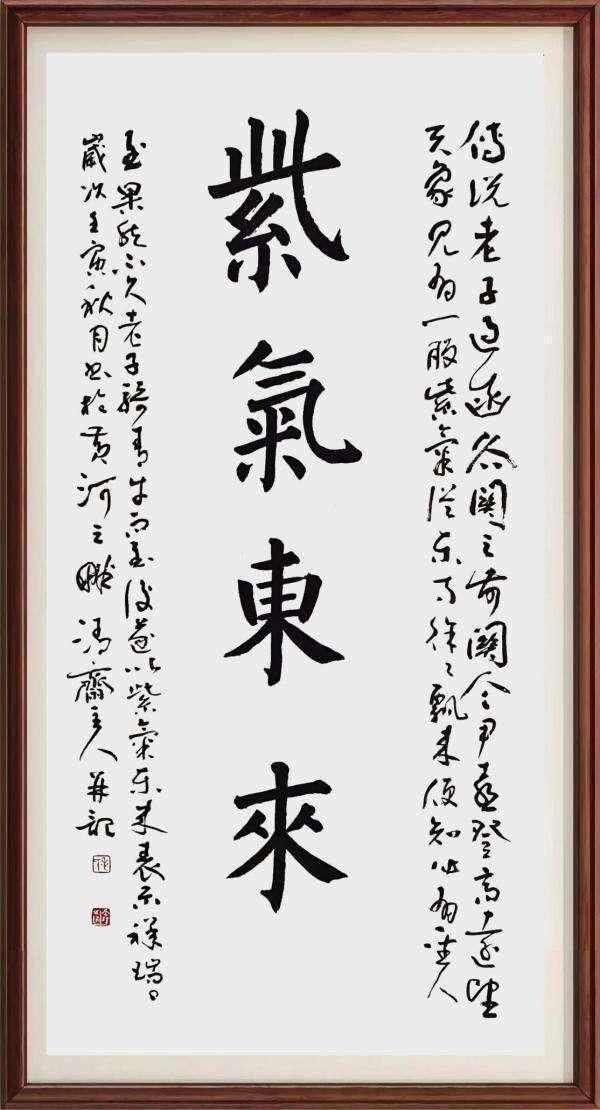 傳说老子過函谷關之前關令尹喜登高遠望
天象見有一股紫氣從东方徐徐飄来便知必有聖人
紫氣東來
至果然不久老子騎青牛而至後遂以紫氣东来表示祥瑞。
歲次壬寅秋月书於黄河之畔 齋主人并記